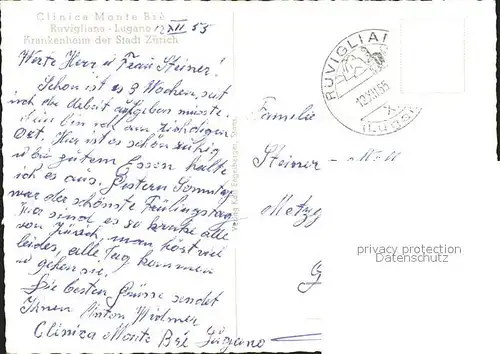 Clinica Monte Brè
Ruvigliana - Lugano 12 XII 55
Krankenheim der Stadt Zürich
Werte Herr u Frau Steiner!
Schon ist es 3 Wochen, seit
ich die Arbeit aufgeben müsste.
bin ich am richtigen
Ort. Hier ist es schön ruhig
u bei gutem Essen halte
ich es aus, Gestern Sonntag
war der schönste Frühlingstag
Hier sind es so kranke alle
von Zürich, man hört viel
leides, alle Tag kommen
u gehen sie,
Die besten Grüsse sendet
Ihnen Anton Widmer
Clinica Monte Brè Lugano
Verlag Karl Engelberger, Stans
RUVIGLIANA
12.XII.55
(LUGANO)
Familie
Steiner
Metzg
G
privacy protection
Datenschutz